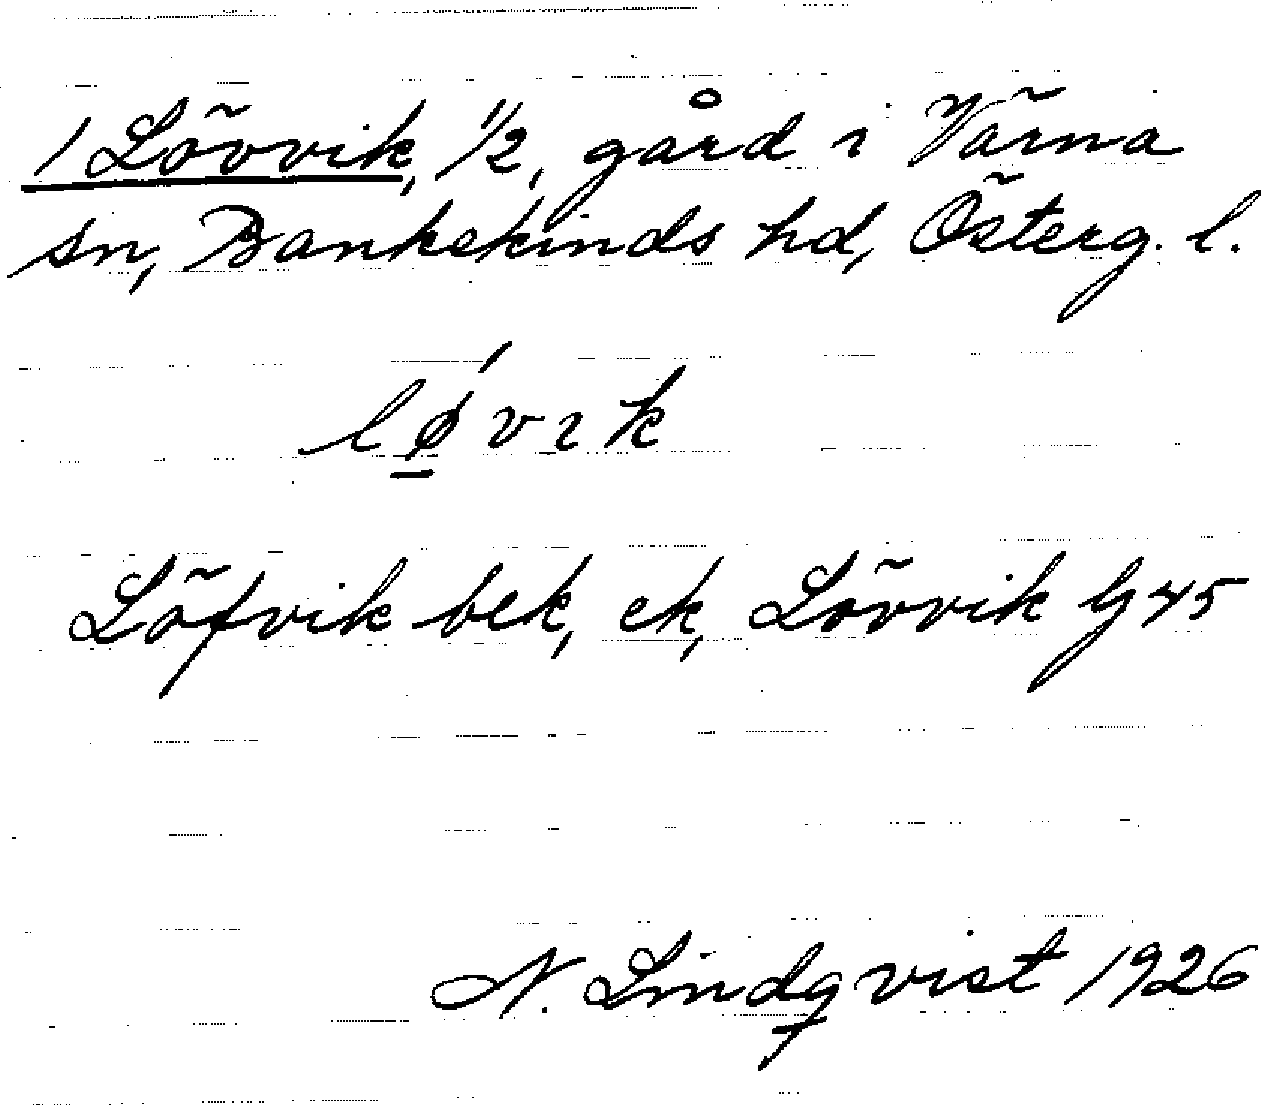 1 Lövvik, 1/2, gård i Värna
sn, Bankekinds hd, Österg. l.
lǿvık
Löfvik bek, ek, Lövvik G 45
N. Lindqvist 1926